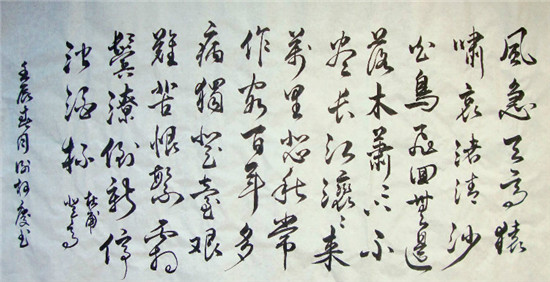 風急天高猿
嘯哀渚清沙
白鳥飛回無邊
落木蕭〻下不
盡長江滾〻來
萬里悲秋常
作客百年多
病獨登臺艱
難苦恨繁霜
鬢潦倒新停
濁酒杯
杜甫
登高
壬辰春月慶書